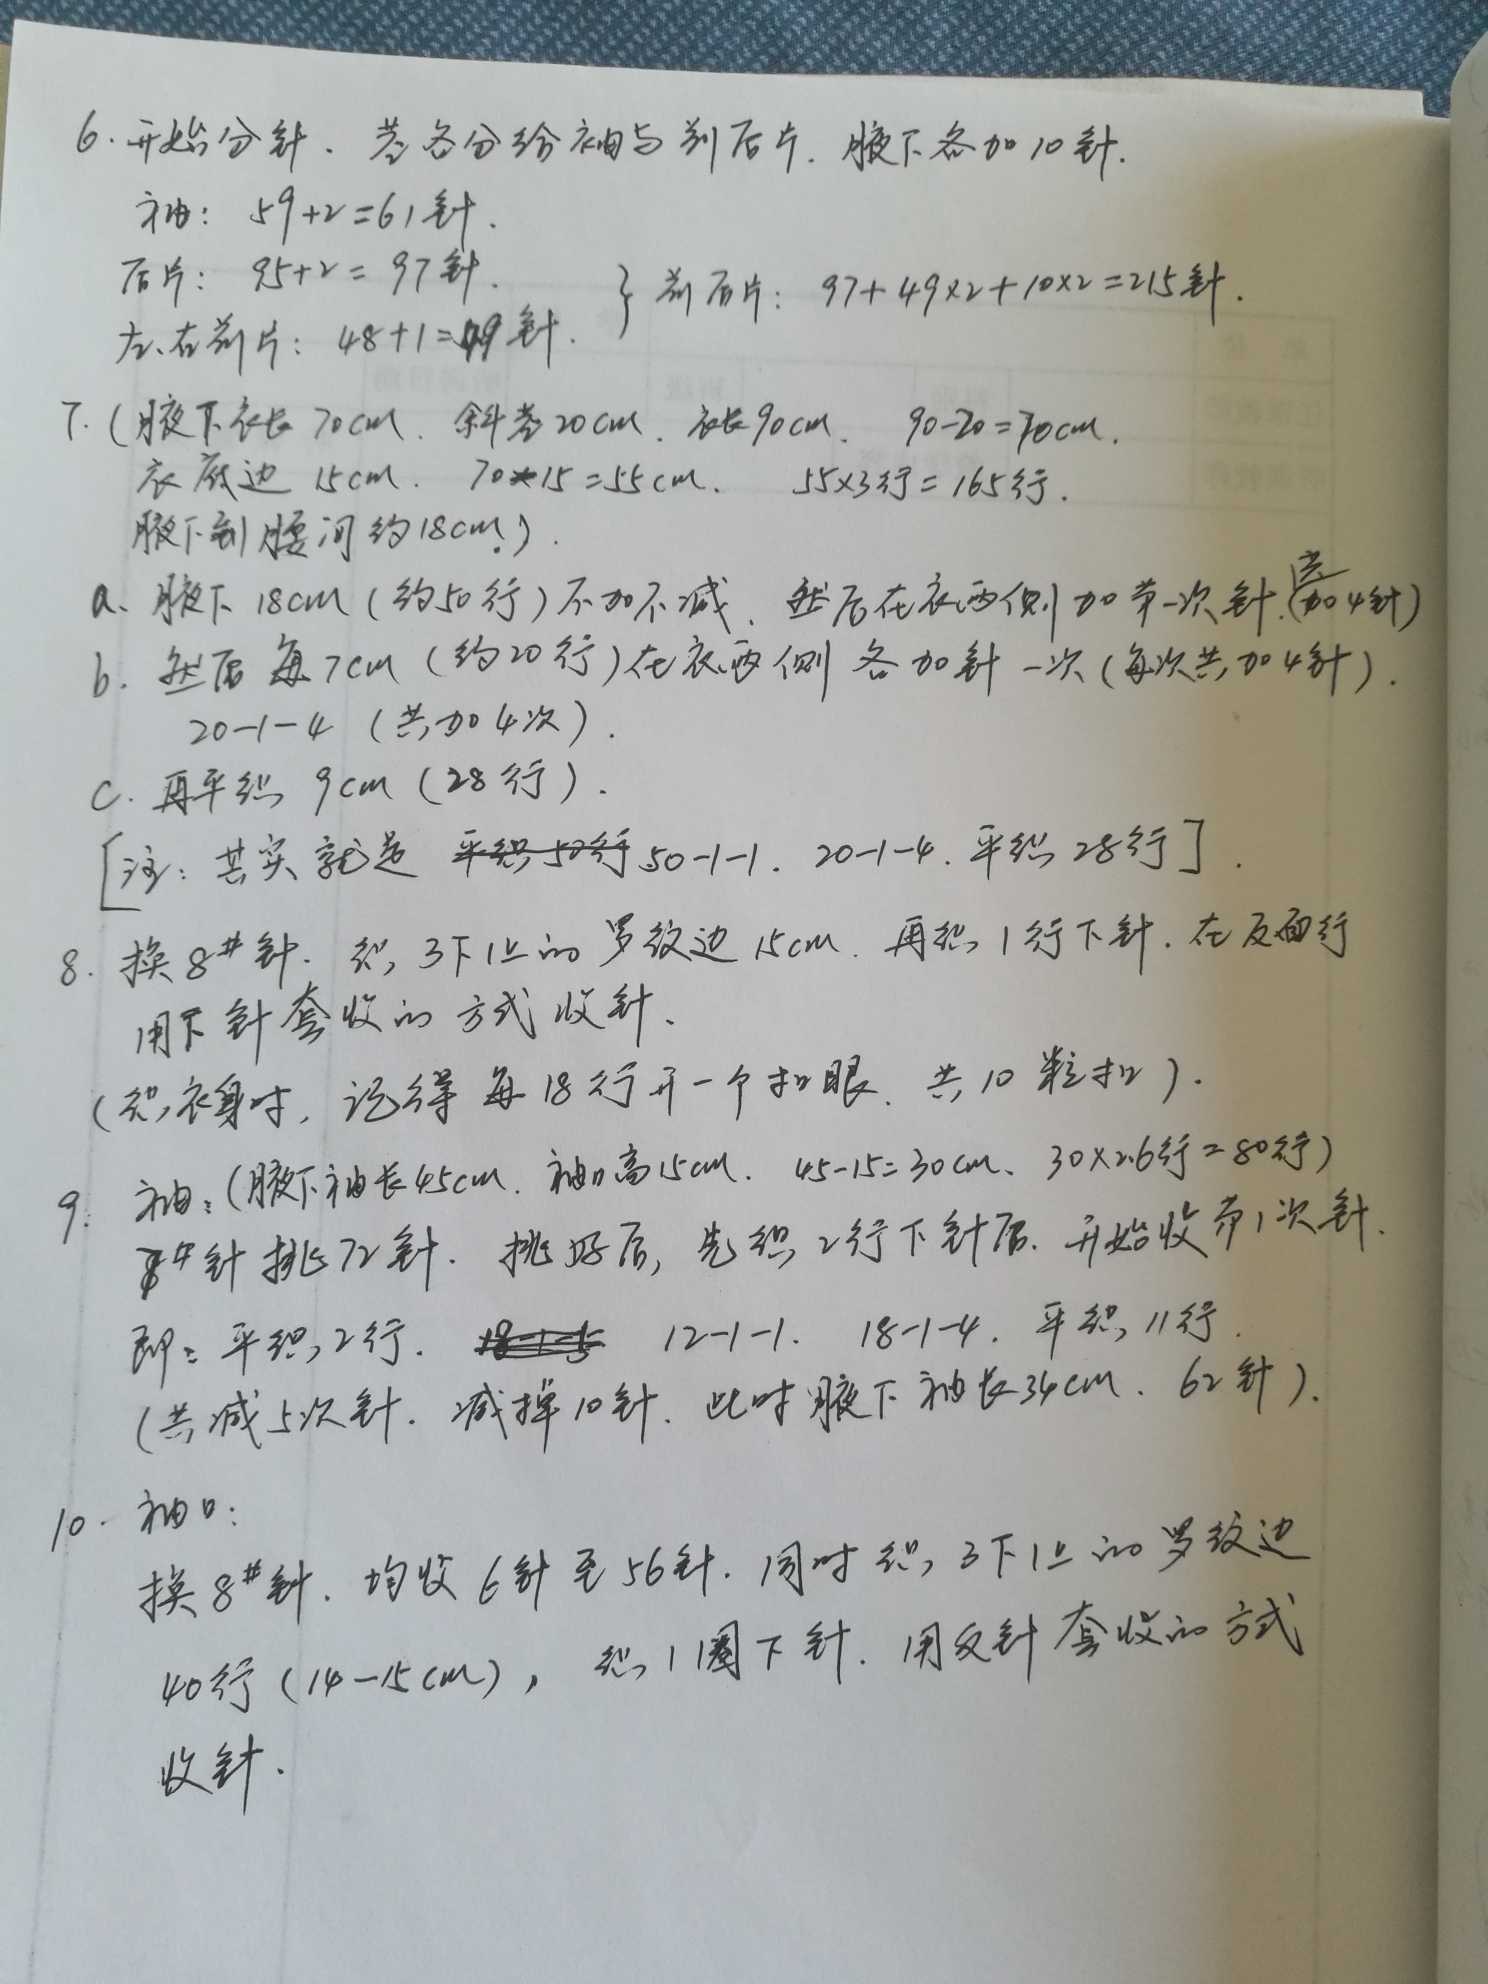 6. 开始分针. 茎各分给袖与前后片. 腋下各加10针.
袖: 59+2=61针.
后片: 95+2=97针. } 前后片: 97+49×2+10×2=215针.
左、右前片: 48+1=49针.
7. (腋下衣长70cm. 斜茎20cm. 衣长90cm. 90-20=70cm.
衣底边15cm. 70-15=55cm. 55×3行=165行.
腋下到腰间约18cm.).
a. 腋下18cm(约50行)不加不减. 然后在衣两侧加第一次针.(共加4针)
b. 然后每7cm(约20行)在衣两侧各加针一次(每次共加4针).
20-1-4 (共加4次).
c. 再平织9cm(28行).
[注: 其实就是 平织50行 50-1-1. 20-1-4. 平织28行].
8. 换8#针. 织3下1上的罗纹边15cm. 再织1行下针. 在反面行
用下针套收的方式收针.
(织衣身时, 记得每18行开一个扣眼. 共10粒扣).
9. 袖:(腋下袖长45cm. 袖口高15cm. 45-15=30cm. 30×2.6行=80行)
针挑72针. 挑好后, 先织2行下针后. 开始收第1次针.
即: 平织2行. 18-1-5 12-1-1. 18-1-4. 平织11行.
(共减5次针. 减掉10针. 此时腋下袖长34cm. 62针).
10. 袖口:
换8#针. 均收6针至56针. 同时织3下1上的罗纹边
40行(14-15cm), 织1圈下针. 用反针套收的方式
收针.